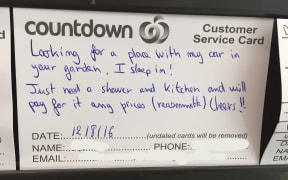 countdown
Customer
Service Card
Looking for a place with my car in
your garden. I sleep in!
Just need a shower and kitchen and will
pay for it any prices (reasonnable) cheers!!
DATE: 12/8/16 (undated cards will be removed)
NAME: PHONE:
EMAIL: